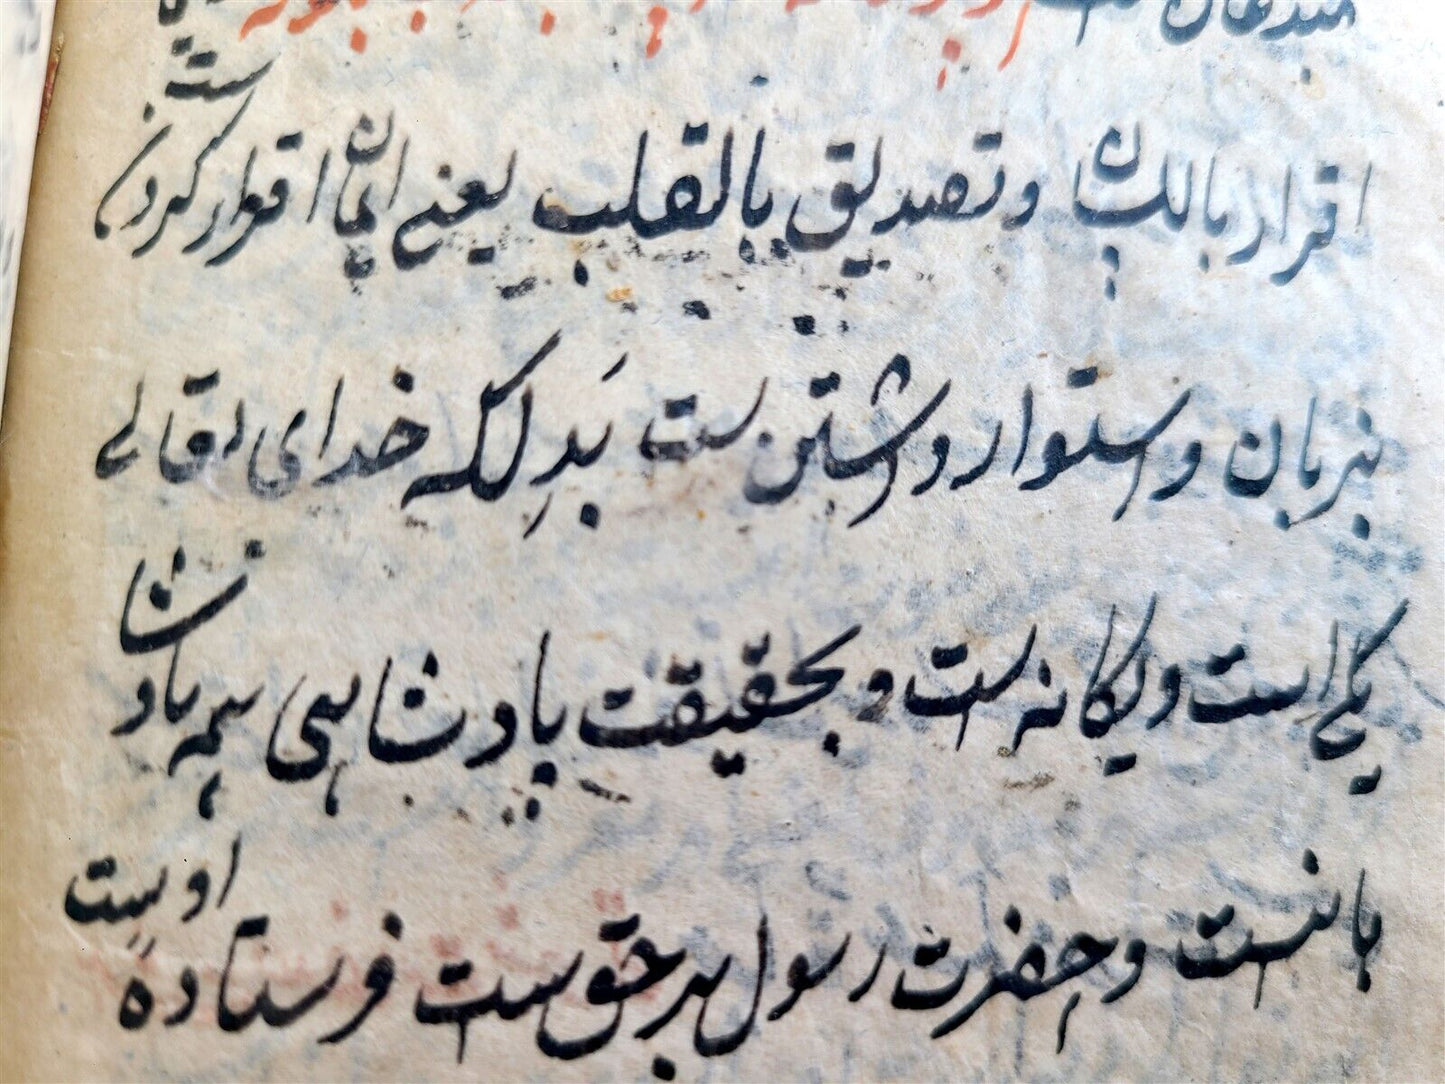 اقرار باللسان و تصدیق بالقلب یعنے ایمان اقرار کردن ست
بزبان و استوار داشتن ست بَدِلکہ خدای تعالے
یکے است و یکانہ است و بحقیقت پادشاہی ہمہ پادشا
ہانست و حضرت رسول برحق ست فرستادہ اوست